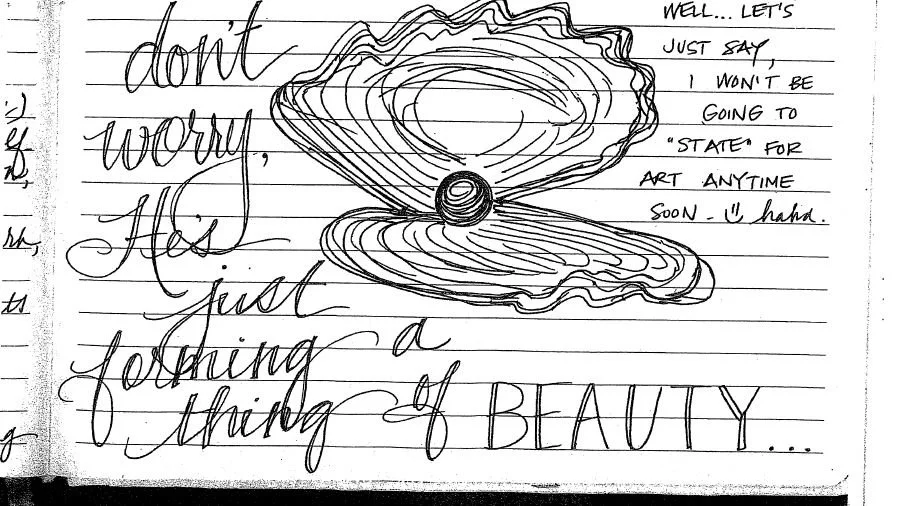 don't
worry,
He's
just
forming a
thing of BEAUTY...
WELL... LET'S
JUST SAY,
I WON'T BE
GOING TO
"STATE" FOR
ART ANYTIME
SOON - haha.
ts
g